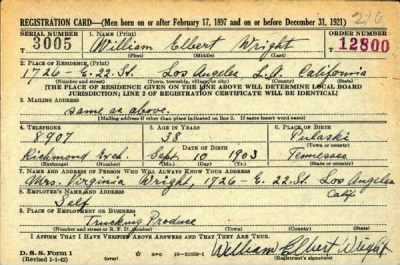 REGISTRATION CARD—(Men born on or after February 17, 1897 and on or before December 31, 1921) 216
SERIAL NUMBER 1. NAME (Print) ORDER NUMBER
3005 William Elbert Wright 12800
(First) (Middle) (Last)
2. PLACE OF RESIDENCE (Print)
1726 - E. 22. St. Los Angeles L.A. California
(Number and street) (Town, township, village, or city) (County) (State)
[THE PLACE OF RESIDENCE GIVEN ON THE LINE ABOVE WILL DETERMINE LOCAL BOARD
JURISDICTION; LINE 2 OF REGISTRATION CERTIFICATE WILL BE IDENTICAL]
3. MAILING ADDRESS
same as above.
[Mailing address if other than place indicated on line 2. If same insert word same]
4. TELEPHONE 5. AGE IN YEARS 6. PLACE OF BIRTH
8907 38 Pulaski
DATE OF BIRTH (Town or county)
Richmond Exch. Sept. 10 1903 Tennessee
(Exchange) (Number) (Mo.) (Day) (Yr.) (State or country)
7. NAME AND ADDRESS OF PERSON WHO WILL ALWAYS KNOW YOUR ADDRESS
Mrs. Virginia Wright, 1726 - E. 22. St. Los Angeles
8. EMPLOYER'S NAME AND ADDRESS Calif
Self
9. PLACE OF EMPLOYMENT OR BUSINESS
Trucking Produce
(Number and street or R. F. D. number) (Town) (County) (State)
I AFFIRM THAT I HAVE VERIFIED ABOVE ANSWERS AND THAT THEY ARE TRUE.
D. S. S. Form 1
(Revised 1-1-42) (over) GPO William Elbert Wright